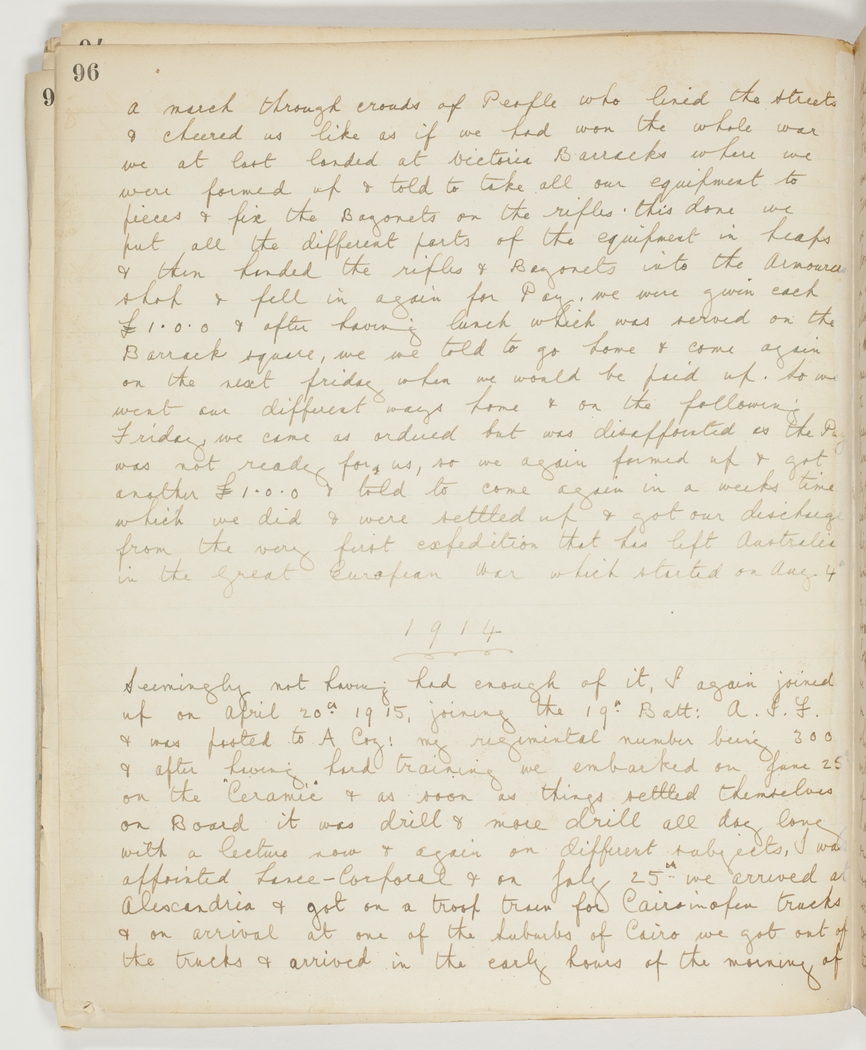 96
a march through crouds of People who lined the streets
& cheered us like as if we had won the whole war
we at last landed at Victoria Barracks where we
were formed up & told to take all our equipment to
pieces & fix the Bayonets on the rifles. this done we
put all the different parts of the equipment in heaps
& then handed the rifles & Bayonets into the Armourer
shop & fell in again for Pay. we were given each
£1.0.0 & after having lunch which was served on the
Barrack square, we we told to go home & come again
on the next friday when we would be paid up. so we
went our different ways home & on the following
Friday, we came as ordered but was disappointed as the Pay
was not ready for us, so we again formed up & got
another £1.0.0 & told to come again in a weeks time
which we did & were settled up & got our discharge
from the very first expedition that has left Australia
in the Great European War which started on Aug. 4
1914
Seemingly not having had enough of it, I again joined
up on April 20th 1915, joining the 19th Batt: A.I.F.
& was posted to A Coy: my regimental number being 300
& after having hard training we embarked on June 25
on the "Ceramic" & as soon as things settled themselves
on Board it was drill & more drill all day long
with a lecture now & again on different subjects, I was
appointed Lance-Corporal & on July 25th we arrived at
Alexandria & got on a troop train for Cairo in open trucks
& on arrival at one of the suburbs of Cairo we got out of
the trucks & arrived in the early hours of the morning of